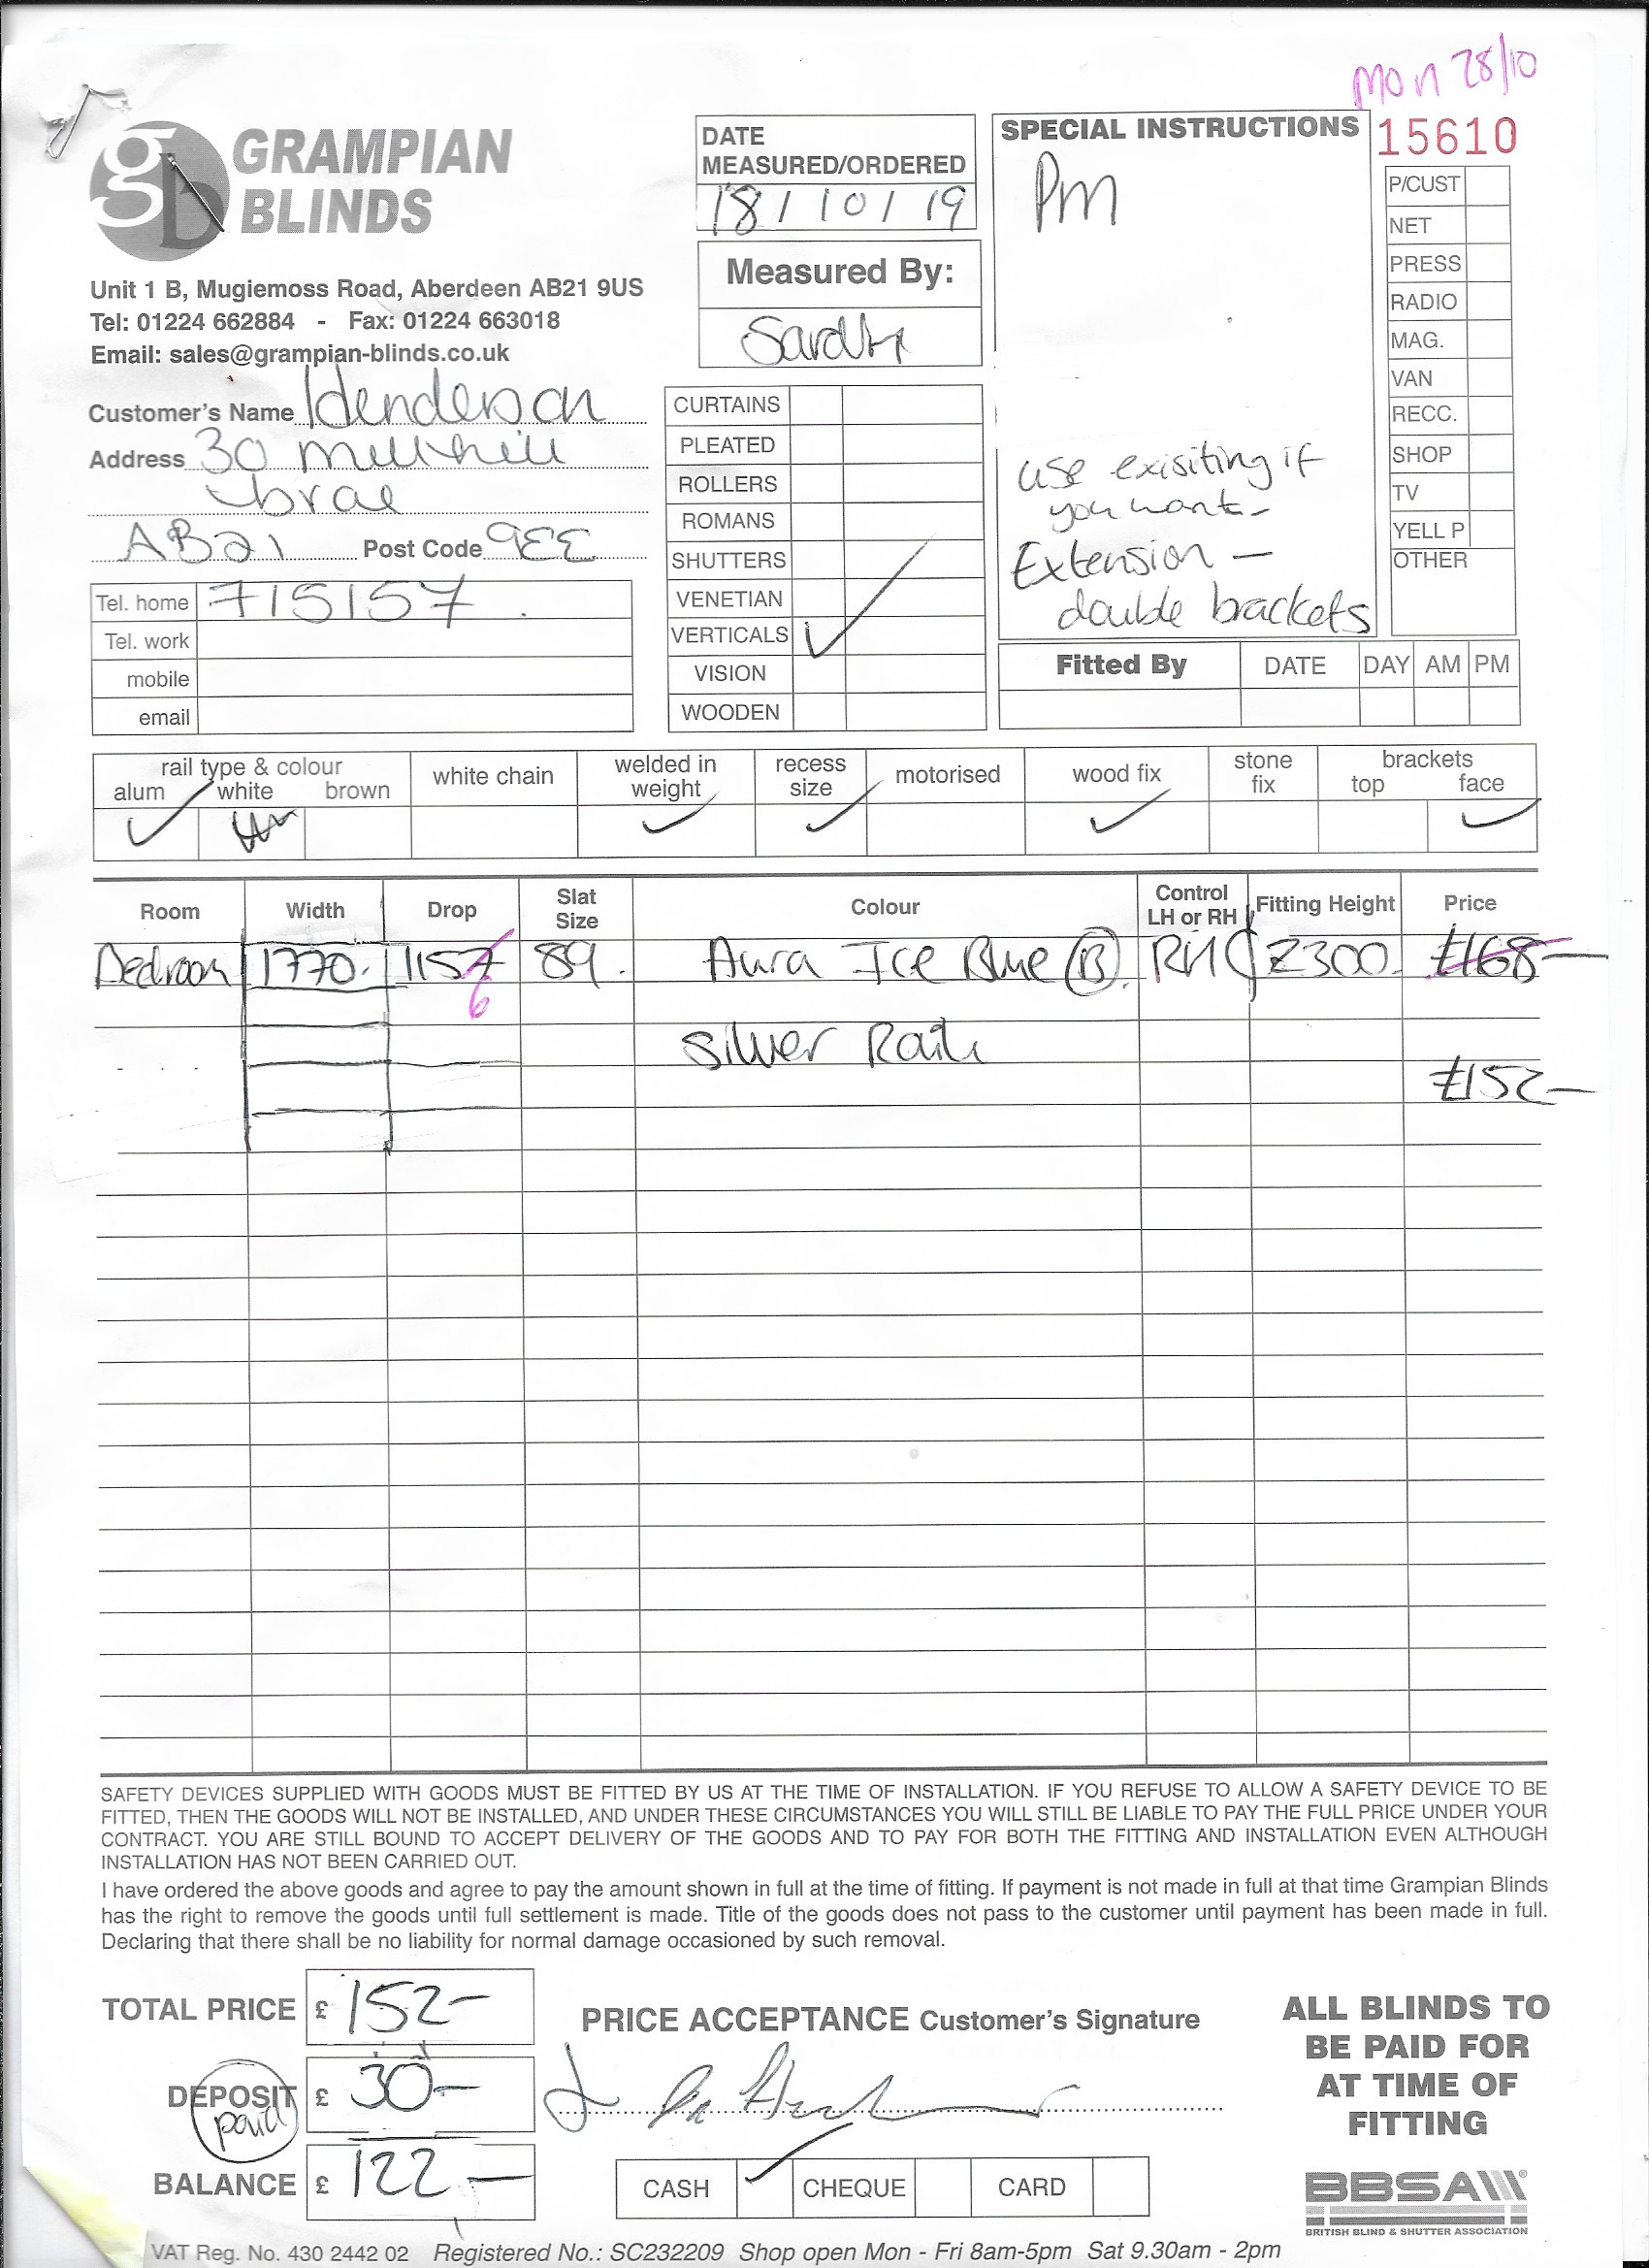 Mon 28/10
GRAMPIAN
BLINDS
Unit 1 B, Mugiemoss Road, Aberdeen AB21 9US
Tel: 01224 662884 - Fax: 01224 663018
Email: sales@grampian-blinds.co.uk
Customer's Name Henderson
Address 30 millhill
brae
AB21 Post Code 9EE
Tel. home 715157
Tel. work
mobile
email
DATE
MEASURED/ORDERED
18/10/19
Measured By:
CURTAINS
PLEATED
ROLLERS
ROMANS
SHUTTERS
VENETIAN
VERTICALS ✓
VISION
WOODEN
SPECIAL INSTRUCTIONS
Pm
use exisiting if
you want-
Extension -
double brackets
15610
P/CUST
NET
PRESS
RADIO
MAG.
VAN
RECC.
SHOP
TV
YELL P
OTHER
Fitted By DATE DAY AM PM
rail type & colour
alum white brown
white chain
welded in
weight
recess
size
motorised
wood fix
stone
fix
brackets
top face
Room Width Drop Slat Size Colour Control LH or RH Fitting Height Price
Bedroom 1770. 1157 89. Aura Ice Blue (B). RH 2300. £168-
6
Silver Rail
£152-
SAFETY DEVICES SUPPLIED WITH GOODS MUST BE FITTED BY US AT THE TIME OF INSTALLATION. IF YOU REFUSE TO ALLOW A SAFETY DEVICE TO BE
FITTED, THEN THE GOODS WILL NOT BE INSTALLED, AND UNDER THESE CIRCUMSTANCES YOU WILL STILL BE LIABLE TO PAY THE FULL PRICE UNDER YOUR
CONTRACT. YOU ARE STILL BOUND TO ACCEPT DELIVERY OF THE GOODS AND TO PAY FOR BOTH THE FITTING AND INSTALLATION EVEN ALTHOUGH
INSTALLATION HAS NOT BEEN CARRIED OUT.
I have ordered the above goods and agree to pay the amount shown in full at the time of fitting. If payment is not made in full at that time Grampian Blinds
has the right to remove the goods until full settlement is made. Title of the goods does not pass to the customer until payment has been made in full.
Declaring that there shall be no liability for normal damage occasioned by such removal.
TOTAL PRICE £ 152-
DEPOSIT £ 30-
paid
BALANCE £ 122-
PRICE ACCEPTANCE Customer's Signature
CASH ✓ CHEQUE CARD
ALL BLINDS TO
BE PAID FOR
AT TIME OF
FITTING
BBSA
BRITISH BLIND & SHUTTER ASSOCIATION
VAT Reg. No. 430 2442 02 Registered No.: SC232209 Shop open Mon - Fri 8am-5pm Sat 9.30am - 2pm